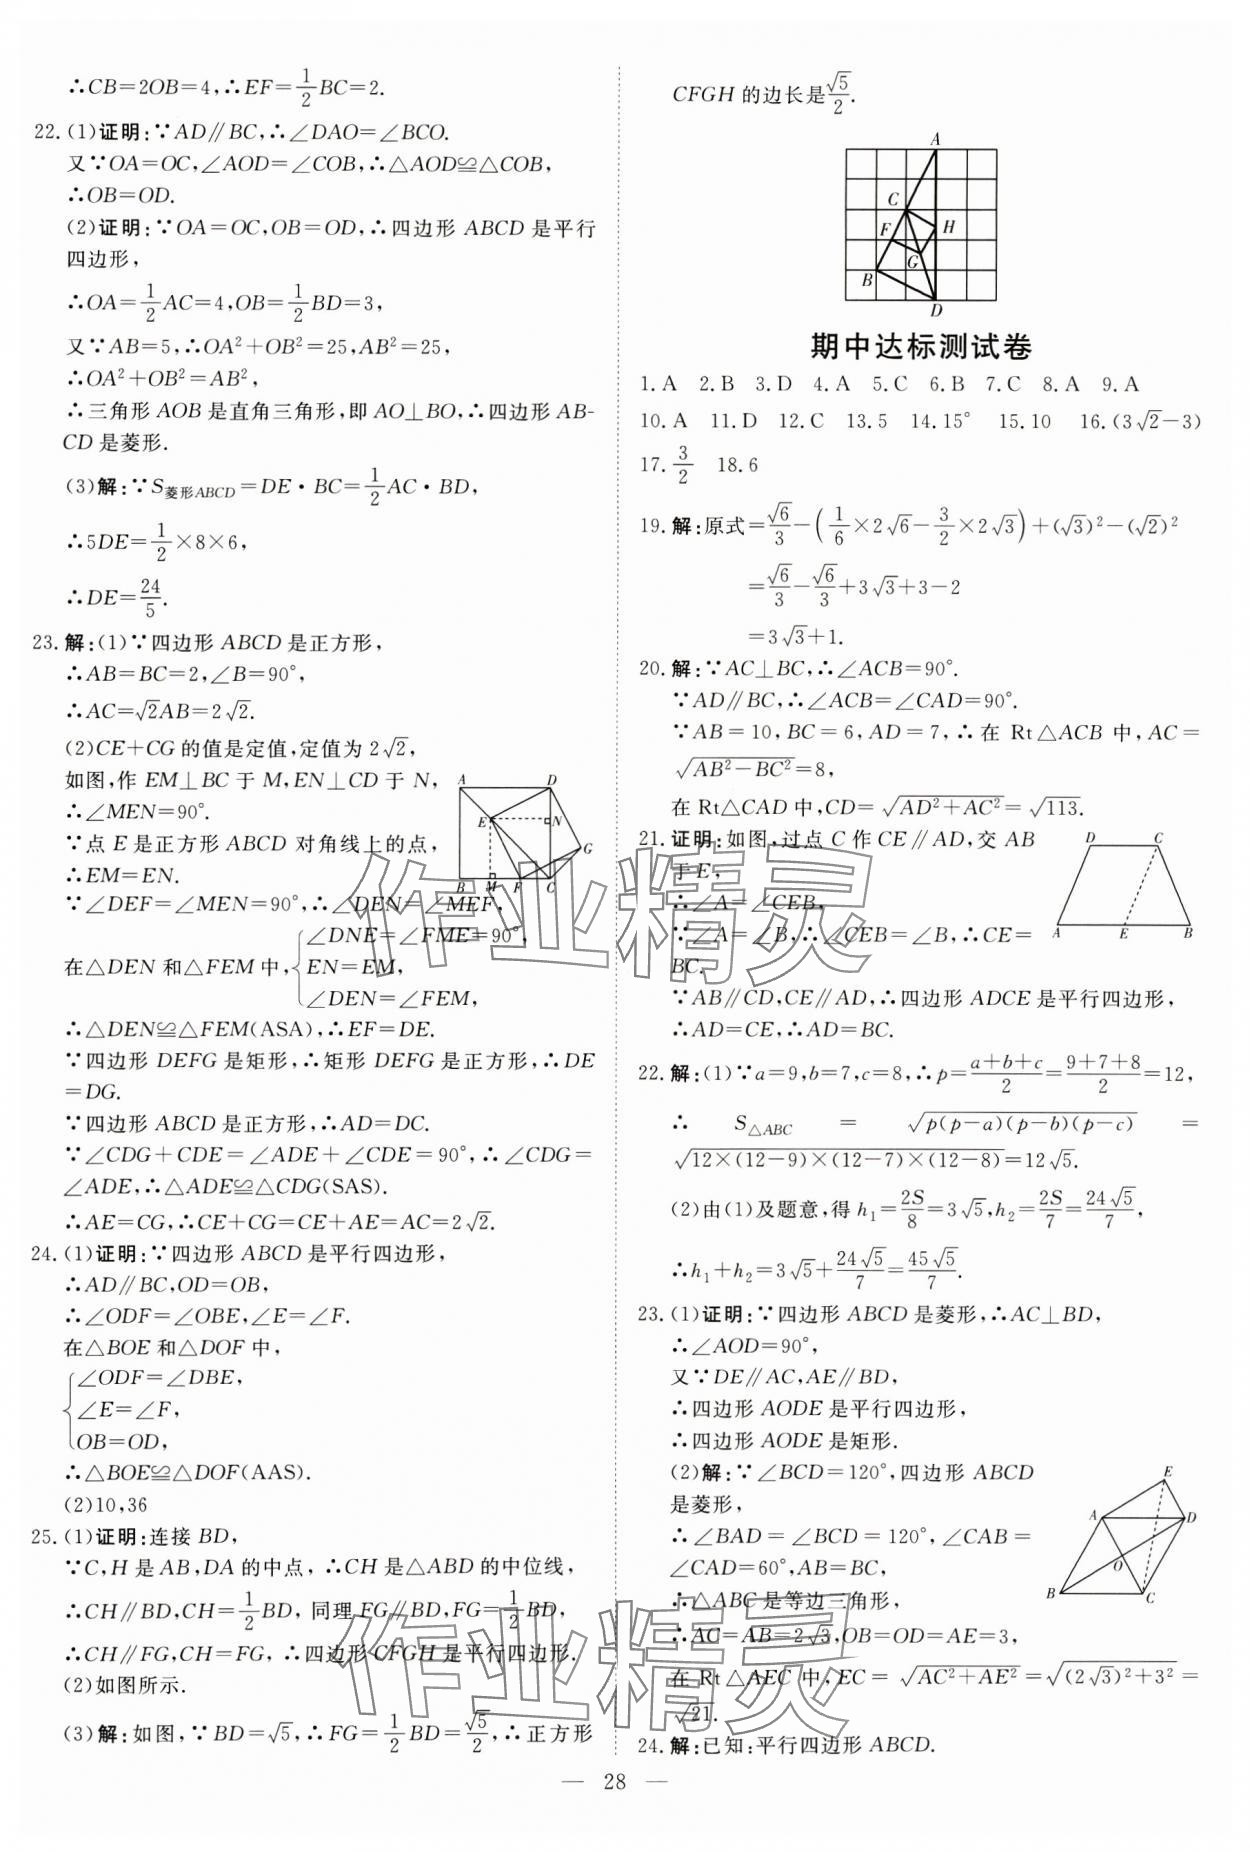 ∴CB=2OB=4,∴EF=1/2BC=2.
22.(1)证明:∵AD∥BC,∴∠DAO=∠BCO.
又∵OA=OC,∠AOD=∠COB,∴△AOD≌△COB,
∴OB=OD.
(2)证明:∵OA=OC,OB=OD,∴四边形 ABCD 是平行
四边形,
∴OA=1/2AC=4,OB=1/2BD=3,
又∵AB=5,∴OA²+OB²=25,AB²=25,
∴OA²+OB²=AB²,
∴三角形 AOB 是直角三角形,即 AO⊥BO,∴四边形 AB-
CD 是菱形.
(3)解:∵S菱形ABCD=DE·BC=1/2AC·BD,
∴5DE=1/2×8×6,
∴DE=24/5.
23.解:(1)∵四边形 ABCD 是正方形,
∴AB=BC=2,∠B=90°,
∴AC=√2AB=2√2.
(2)CE+CG 的值是定值,定值为 2√2,
如图,作 EM⊥BC 于 M,EN⊥CD 于 N,
∴∠MEN=90°.
∵点 E 是正方形 ABCD 对角线上的点,
∴EM=EN.
A D E N G B M F C
∵∠DEF=∠MEN=90°,∴∠DEN=∠MEF,
在△DEN 和△FEM 中,{∠DNE=∠FME=90°,
EN=EM,
∠DEN=∠FEM,
∴△DEN≌△FEM(ASA),∴EF=DE.
∵四边形 DEFG 是矩形,∴矩形 DEFG 是正方形,∴DE
=DG.
∵四边形 ABCD 是正方形,∴AD=DC.
∵∠CDG+CDE=∠ADE+∠CDE=90°,∴∠CDG=
∠ADE,∴△ADE≌△CDG(SAS).
∴AE=CG,∴CE+CG=CE+AE=AC=2√2.
24.(1)证明:∵四边形 ABCD 是平行四边形,
∴AD∥BC,OD=OB,
∴∠ODF=∠OBE,∠E=∠F.
在△BOE 和△DOF 中,
{∠ODF=∠DBE,
∠E=∠F,
OB=OD,
∴△BOE≌△DOF(AAS).
(2)10,36
25.(1)证明:连接 BD,
∵C,H 是 AB,DA 的中点,∴CH 是△ABD 的中位线,
∴CH∥BD,CH=1/2BD,同理 FG∥BD,FG=1/2BD,
∴CH∥FG,CH=FG,∴四边形 CFGH 是平行四边形.
(2)如图所示.
(3)解:如图,∵BD=√5,∴FG=1/2BD=√5/2,∴正方形
CFGH 的边长是√5/2.
A C F H G B D
期中达标测试卷
1.A 2.B 3.D 4.A 5.C 6.B 7.C 8.A 9.A
10.A 11.D 12.C 13.5 14.15° 15.10 16.(3√2-3)
17.3/2 18.6
19.解:原式=√6/3-(1/6×2√6-3/2×2√3)+(√3)²-(√2)²
=√6/3-√6/3+3√3+3-2
=3√3+1.
20.解:∵AC⊥BC,∴∠ACB=90°.
∵AD∥BC,∴∠ACB=∠CAD=90°.
∵AB=10,BC=6,AD=7,∴在 Rt△ACB 中,AC=
√(AB²-BC²)=8,
在 Rt△CAD 中,CD=√(AD²+AC²)=√113.
21.证明:如图,过点 C 作 CE∥AD,交 AB
于 E,
∴∠A=∠CEB,
∵∠A=∠B,∴∠CEB=∠B,∴CE=
BC.
D C A E B
∵AB∥CD,CE∥AD,∴四边形 ADCE 是平行四边形,
∴AD=CE,∴AD=BC.
22.解:(1)∵a=9,b=7,c=8,∴p=(a+b+c)/2=(9+7+8)/2=12,
∴ S△ABC = √(p(p-a)(p-b)(p-c)) =
√(12×(12-9)×(12-7)×(12-8))=12√5.
(2)由(1)及题意,得 h₁=2S/8=3√5,h₂=2S/7=24√5/7,
∴h₁+h₂=3√5+24√5/7=45√5/7.
23.(1)证明:∵四边形 ABCD 是菱形,∴AC⊥BD,
∴∠AOD=90°,
又∵DE∥AC,AE∥BD,
∴四边形 AODE 是平行四边形,
∴四边形 AODE 是矩形.
(2)解:∵∠BCD=120°,四边形 ABCD
是菱形,
∴∠BAD=∠BCD=120°,∠CAB=
∠CAD=60°,AB=BC,
∴△ABC 是等边三角形,
E A D O B C
∴AC=AB=2√3,OB=OD=AE=3,
在 Rt△AEC 中,EC=√(AC²+AE²)=√((2√3)²+3²)=
√21.
24.解:已知:平行四边形 ABCD.
— 28 —
作业精灵
作业精灵